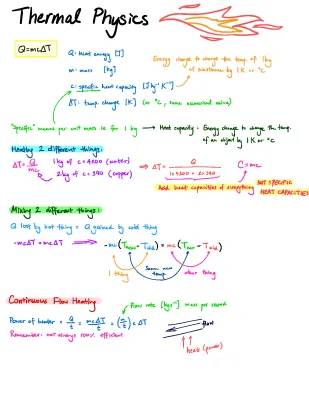 Thermal Physics
Q=mcΔT
Q: heat energy [J]
m: mass [kg]
c: specific heat capacity [Jkg⁻¹K⁻¹]
ΔT: temp. change [K] (or °C, same numerical value)
Energy change to change the temp. of 1kg
of substance by 1K or °C
"Specific" means per unit mass ie for 1 kg → Heat capacity: Energy change to change the temp.
of an object by 1K or °C
Heating 2 different things:
ΔT = Q/mc
1kg of c=4200 (water)
2kg of c=390 (copper)
⇒ ΔT = Q/(1×4200 + 2×390)
C=mc
Add heat capacities of everything
NOT SPECIFIC
HEAT CAPACITIES
Mixing 2 different things:
Q lost by hot thing = Q gained by cold thing
-mcΔT = mcΔT ⇒ -mc(Tnew - Told) = mc(Tnew - Told)
1 thing
Same new
temp.
other thing
Continuous Flow Heating
Flow rate [kgs⁻¹] mass per second
Power of heater = Q/t = mcΔT/t = (m/t)cΔT
Remember: not always 100% efficient
flow
heat (power)